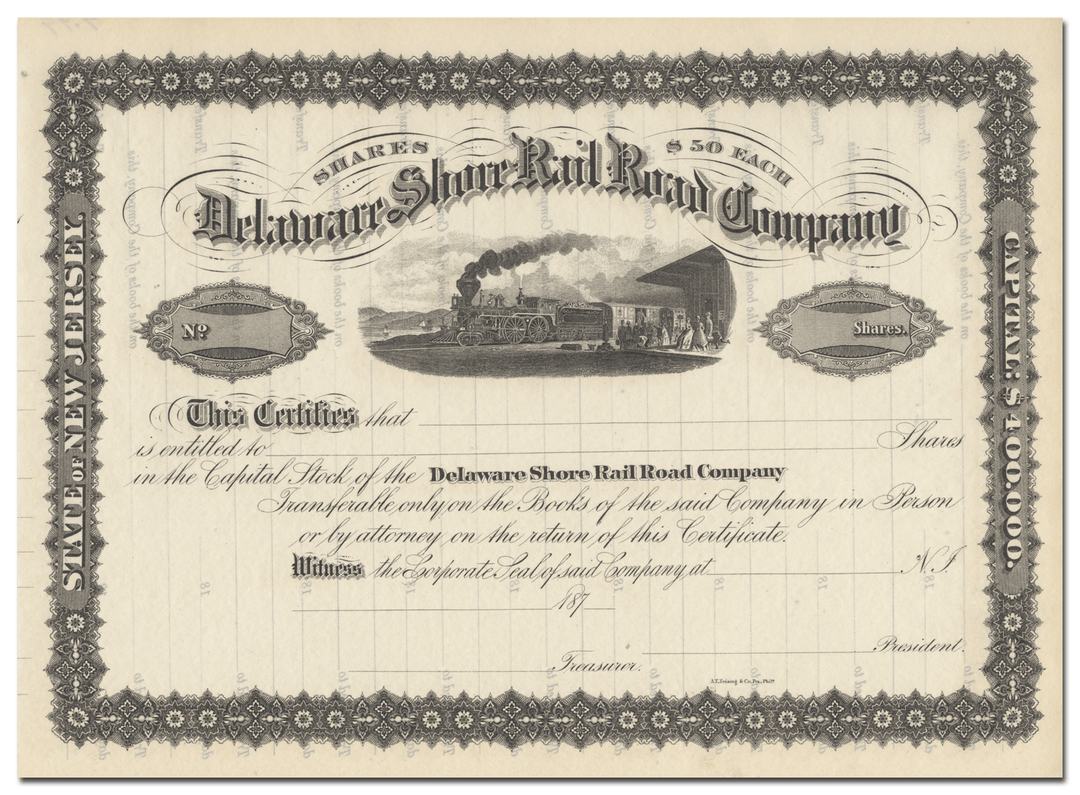 SHARES $50 EACH
Delaware Shore Rail Road Company
STATE OF NEW JERSEY
CAPITAL: $400,000.
No
Shares.
This Certifies that
is entitled to Shares
in the Capital Stock of the Delaware Shore Rail Road Company
Transferable only on the Books of the said Company in Person
or by attorney on the return of this Certificate.
Witness the Corporate Seal of said Company at N.J.
187
President.
Treasurer.